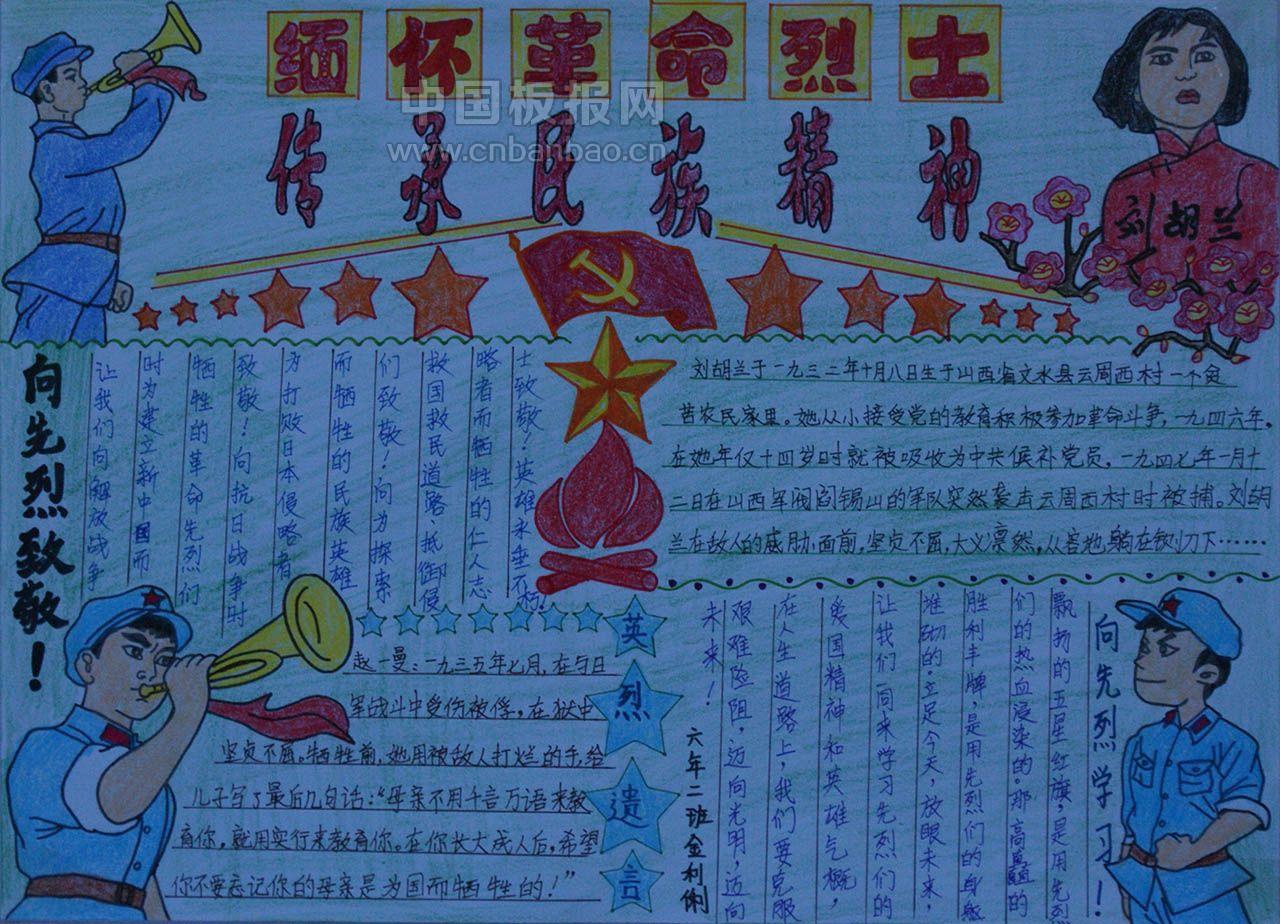 缅怀革命烈士
传承民族精神
中国板报网
www.cnbanbao.cn
刘胡兰
向先烈致敬！
让我们向解放战争
时为建立新中国而
牺牲的革命先烈们
致敬！向抗日战争时
为打败日本侵略者
而牺牲的民族英雄
们致敬！向为探索
救国救民道路、抵御侵
略者而牺牲的仁人志
士致敬！英雄永垂不朽！
刘胡兰于一九三二年十月八日生于山西省文水县云周西村一个贫
苦农民家里。她从小接受党的教育积极参加革命斗争，一九四六年。
在她年仅十四岁时就被吸收为中共候补党员，一九四七年一月十
二日在山西军阀阎锡山的军队突然袭击云周西村时被捕。刘胡
兰在敌人的威胁面前，坚贞不屈，大义凛然，从容地躺在铡刀下……
英烈遗言
赵一曼：一九三五年七月，在与日
军战斗中受伤被俘，在狱中
坚贞不屈。牺牲前，她用被敌人打烂的手，给
儿子写了最后几句话：“母亲不用千言万语来教
育你，就用实行来教育你。在你长大成人后，希望
你不要忘记你的母亲是为国而牺牲的！”
向先烈学习！
飘扬的五星红旗，是用先烈
们的热血浸染的。那高矗的
胜利丰牌，是用先烈们的身躯
堆砌的。立足今天，放眼未来，
让我们一同来学习先烈们的
爱国精神和英雄气概，
在人生道路上，我们要克服
艰难险阻，迈向光明，迈向
未来！
六年二班金利俐